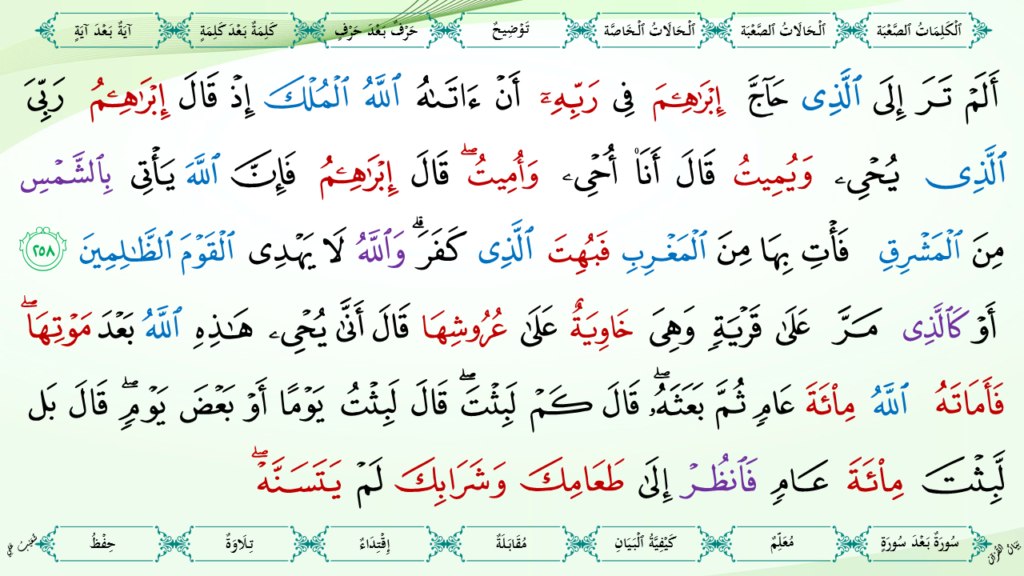 اَلْكَلِمَاتُ الصَّعْبَة اَلْحَالَاتُ الصَّعْبَة اَلْحَالَاتُ الْخَاصَّة تَوْضِيحٌ حَرْفٌ بَعْدَ حَرْفٍ كَلِمَةٌ بَعْدَ كَلِمَةٍ آيَةٌ بَعْدَ آيَةٍ
أَلَمْ تَرَ إِلَى ٱلَّذِى حَآجَّ إِبْرَٰهِـۧمَ فِى رَبِّهِۦٓ أَنْ ءَاتَىٰهُ ٱللَّهُ ٱلْمُلْكَ إِذْ قَالَ إِبْرَٰهِـۧمُ رَبِّىَ
ٱلَّذِى يُحْىِۦ وَيُمِيتُ قَالَ أَنَا۠ أُحْىِۦ وَأُمِيتُ ۖ قَالَ إِبْرَٰهِـۧمُ فَإِنَّ ٱللَّهَ يَأْتِى بِٱلشَّمْسِ
مِنَ ٱلْمَشْرِقِ فَأْتِ بِهَا مِنَ ٱلْمَغْرِبِ فَبُهِتَ ٱلَّذِى كَفَرَ ۗ وَٱللَّهُ لَا يَهْدِى ٱلْقَوْمَ ٱلظَّٰلِمِينَ ٢٥٨
أَوْ كَٱلَّذِى مَرَّ عَلَىٰ قَرْيَةٍ وَهِىَ خَاوِيَةٌ عَلَىٰ عُرُوشِهَا قَالَ أَنَّىٰ يُحْىِۦ هَٰذِهِ ٱللَّهُ بَعْدَ مَوْتِهَا ۖ
فَأَمَاتَهُ ٱللَّهُ مِا۟ئَةَ عَامٍ ثُمَّ بَعَثَهُۥ ۖ قَالَ كَمْ لَبِثْتَ ۖ قَالَ لَبِثْتُ يَوْمًا أَوْ بَعْضَ يَوْمٍ ۖ قَالَ بَل
لَّبِثْتَ مِا۟ئَةَ عَامٍ فَٱنظُرْ إِلَىٰ طَعَامِكَ وَشَرَابِكَ لَمْ يَتَسَنَّهْ ۖ
سُورَةٌ بَعْدَ سُورَةٍ مُعَلِّمٌ كَيْفِيَّةُ الْبَيَانِ مُقَابَلَةٌ اِقْتِدَاءٌ تِلَاوَةٌ حِفْظُ